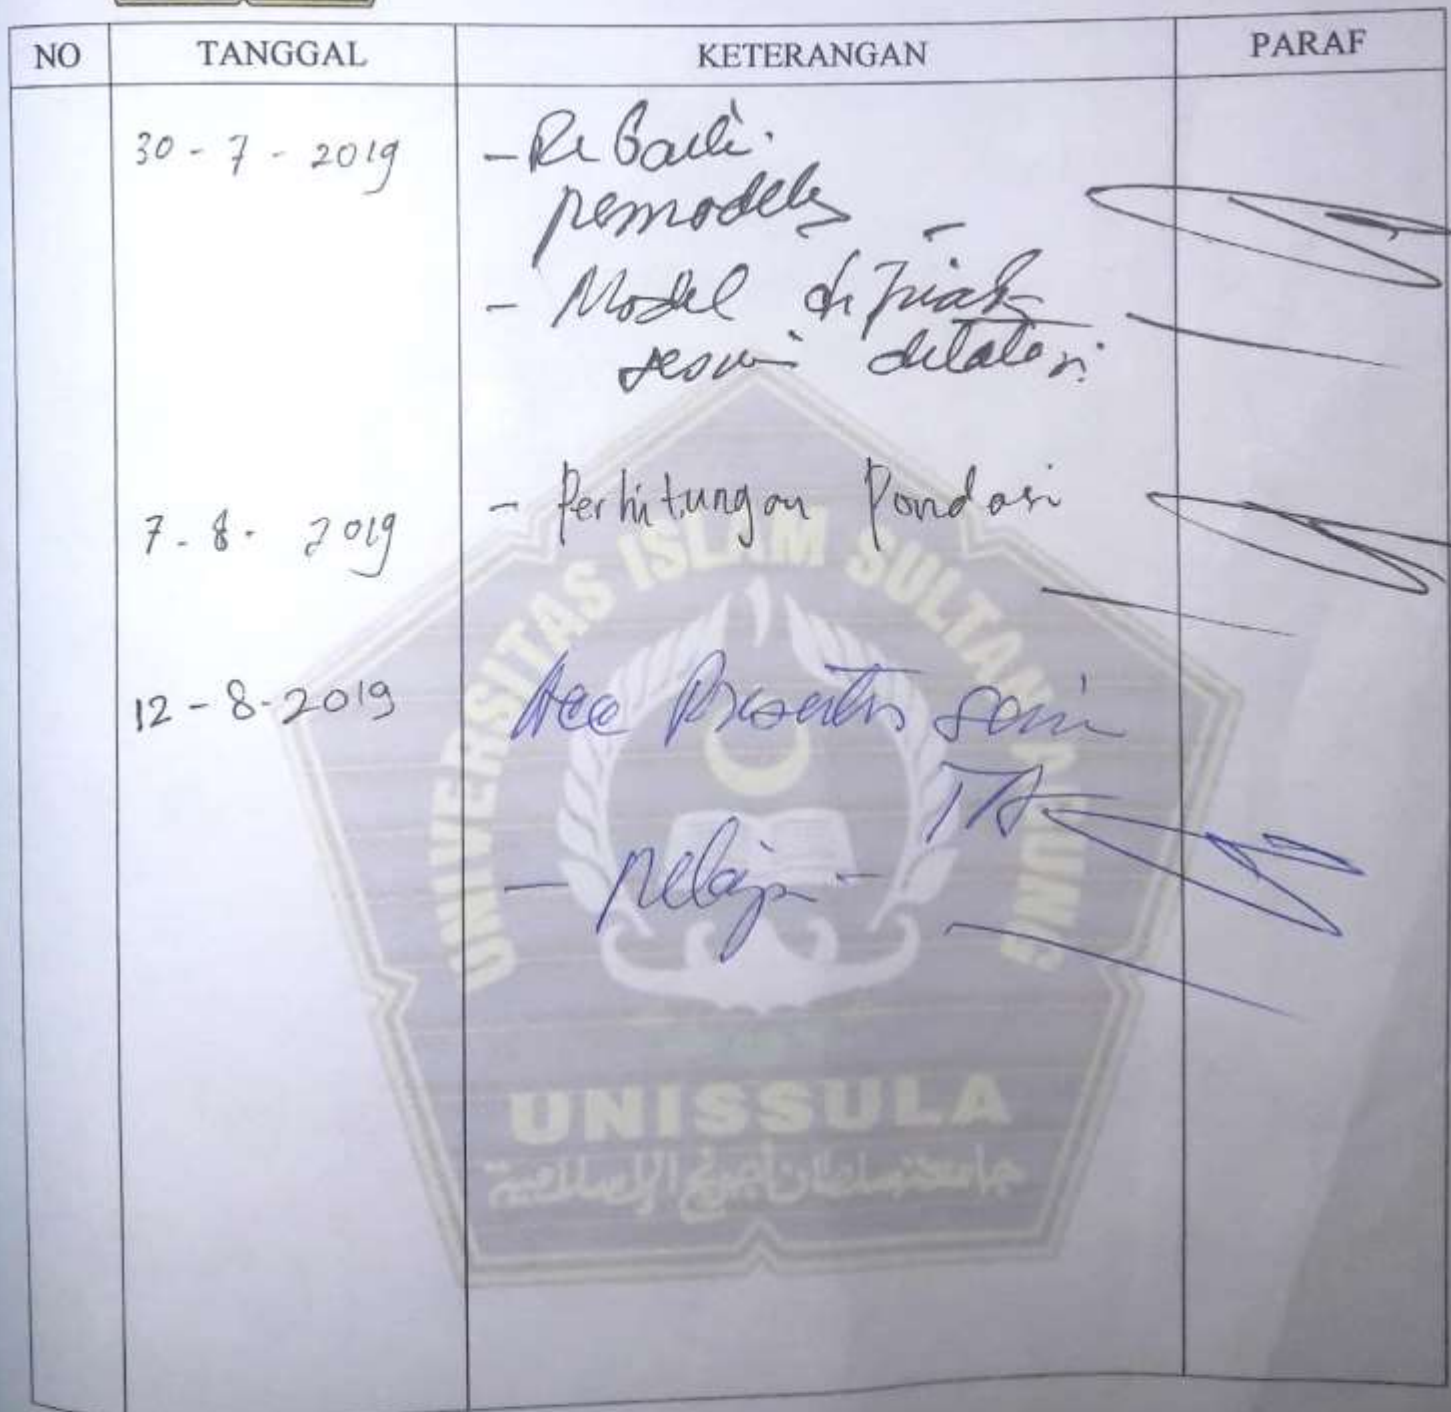 NO TANGGAL KETERANGAN PARAF
30 - 7 - 2019
pemodelan
- Model di
sesuai dilatasi
7 - 8 - 2019 - Perhitungan Pondasi
12 - 8 - 2019 Acc
TA
UNIVERSITAS ISLAM SULTAN AGUNG
UNISSULA
جامعة سلطان أجونج الإسلامية